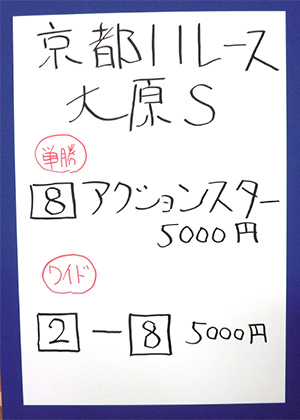 京都11レース
大原S
単勝
8 アクションスター
5000円
ワイド
2 ー 8 5000円